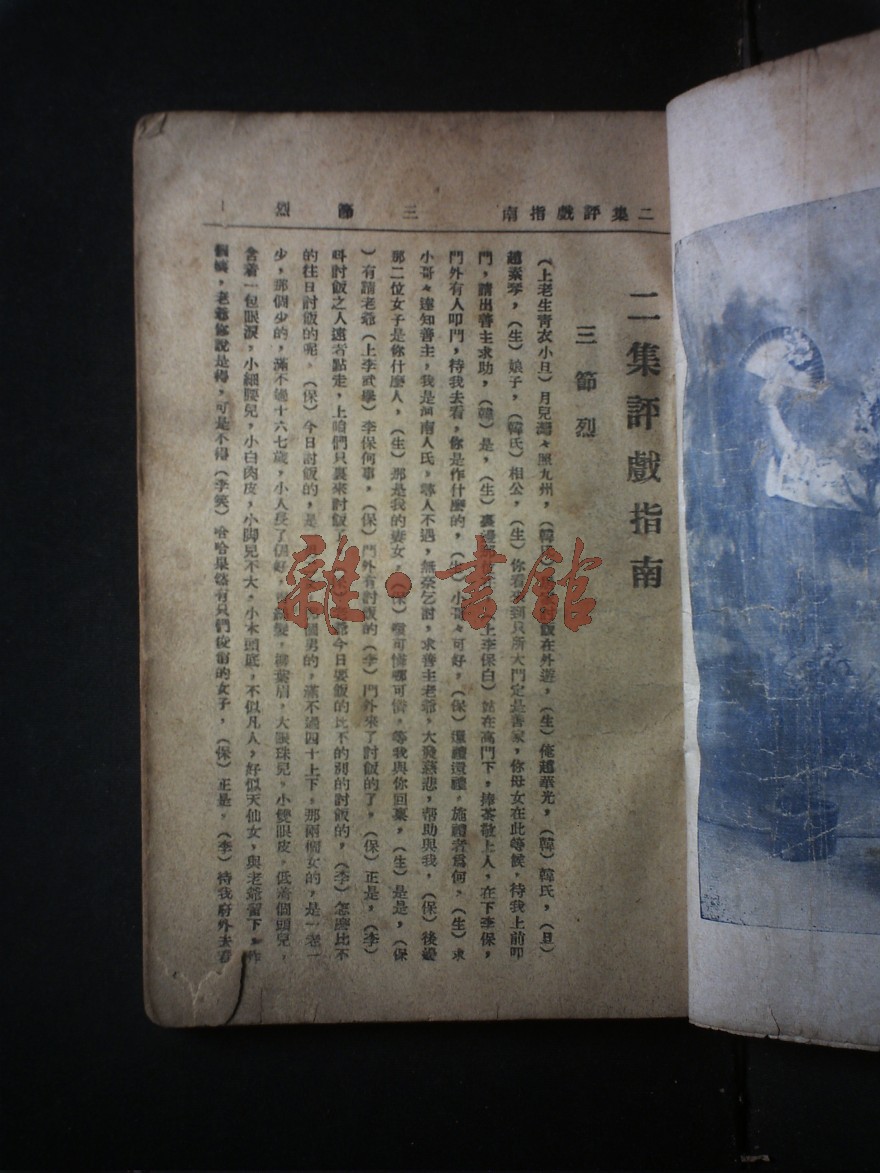 二集評戲指南　三節烈　一
二集評戲指南
三節烈
(上老生青衣小旦)月兒灣々照九州，(韓氏)討飯在外遊，(生)俺趙華光，(韓)韓氏，(旦)
趙素琴，(生)娘子，(韓氏)相公，(生)你看來到只所大門定是善家，你母女在此等候，待我上前叩
門，請出善主求助，(韓)是，(生)裏邊(上李保白)站在高門下，捧茶敬上人，在下李保，
門外有人叩門，待我去看，你是作什麼的，(生)小哥々可好，(保)還禮還禮，施禮者為何，(生)求
小哥々達知善主，我是河南人氏，尋人不遇，無奈乞討，求善主老爺，大發慈悲，帮助與我，(保)後邊
那二位女子是你什麼人，(生)那是我的妻女，(保)可憐哪可憐，等我與你回稟，(生)是是，(保
)有請老爺(上李武舉)李保何事，(保)門外有討飯的(李)門外來了討飯的了，(保)正是，(李)
叫討飯之人遠着點走，上咱們只裏來討飯了，老爺今日要飯的比不的別的討飯的，(李)怎麼比不
的往日討飯的呢，(保)今日討飯的，是個男的，滿不過四十上下，那兩個女的，是一老一
少，那個少的，滿不過十六七歲，小人長了個好，柳葉眉，大眼珠兒，小雙眼皮，低着個頭兒，
含着一包眼淚，小細腰兒，小白肉皮，小脚兒不大，小木頭底，不似凡人，好似天仙女，與老爺留下，作
老爺你說是得，可是不得(李笑)哈哈果然有只們俊俏的女子，(保)正是，(李)待我府外去看
雜·書館